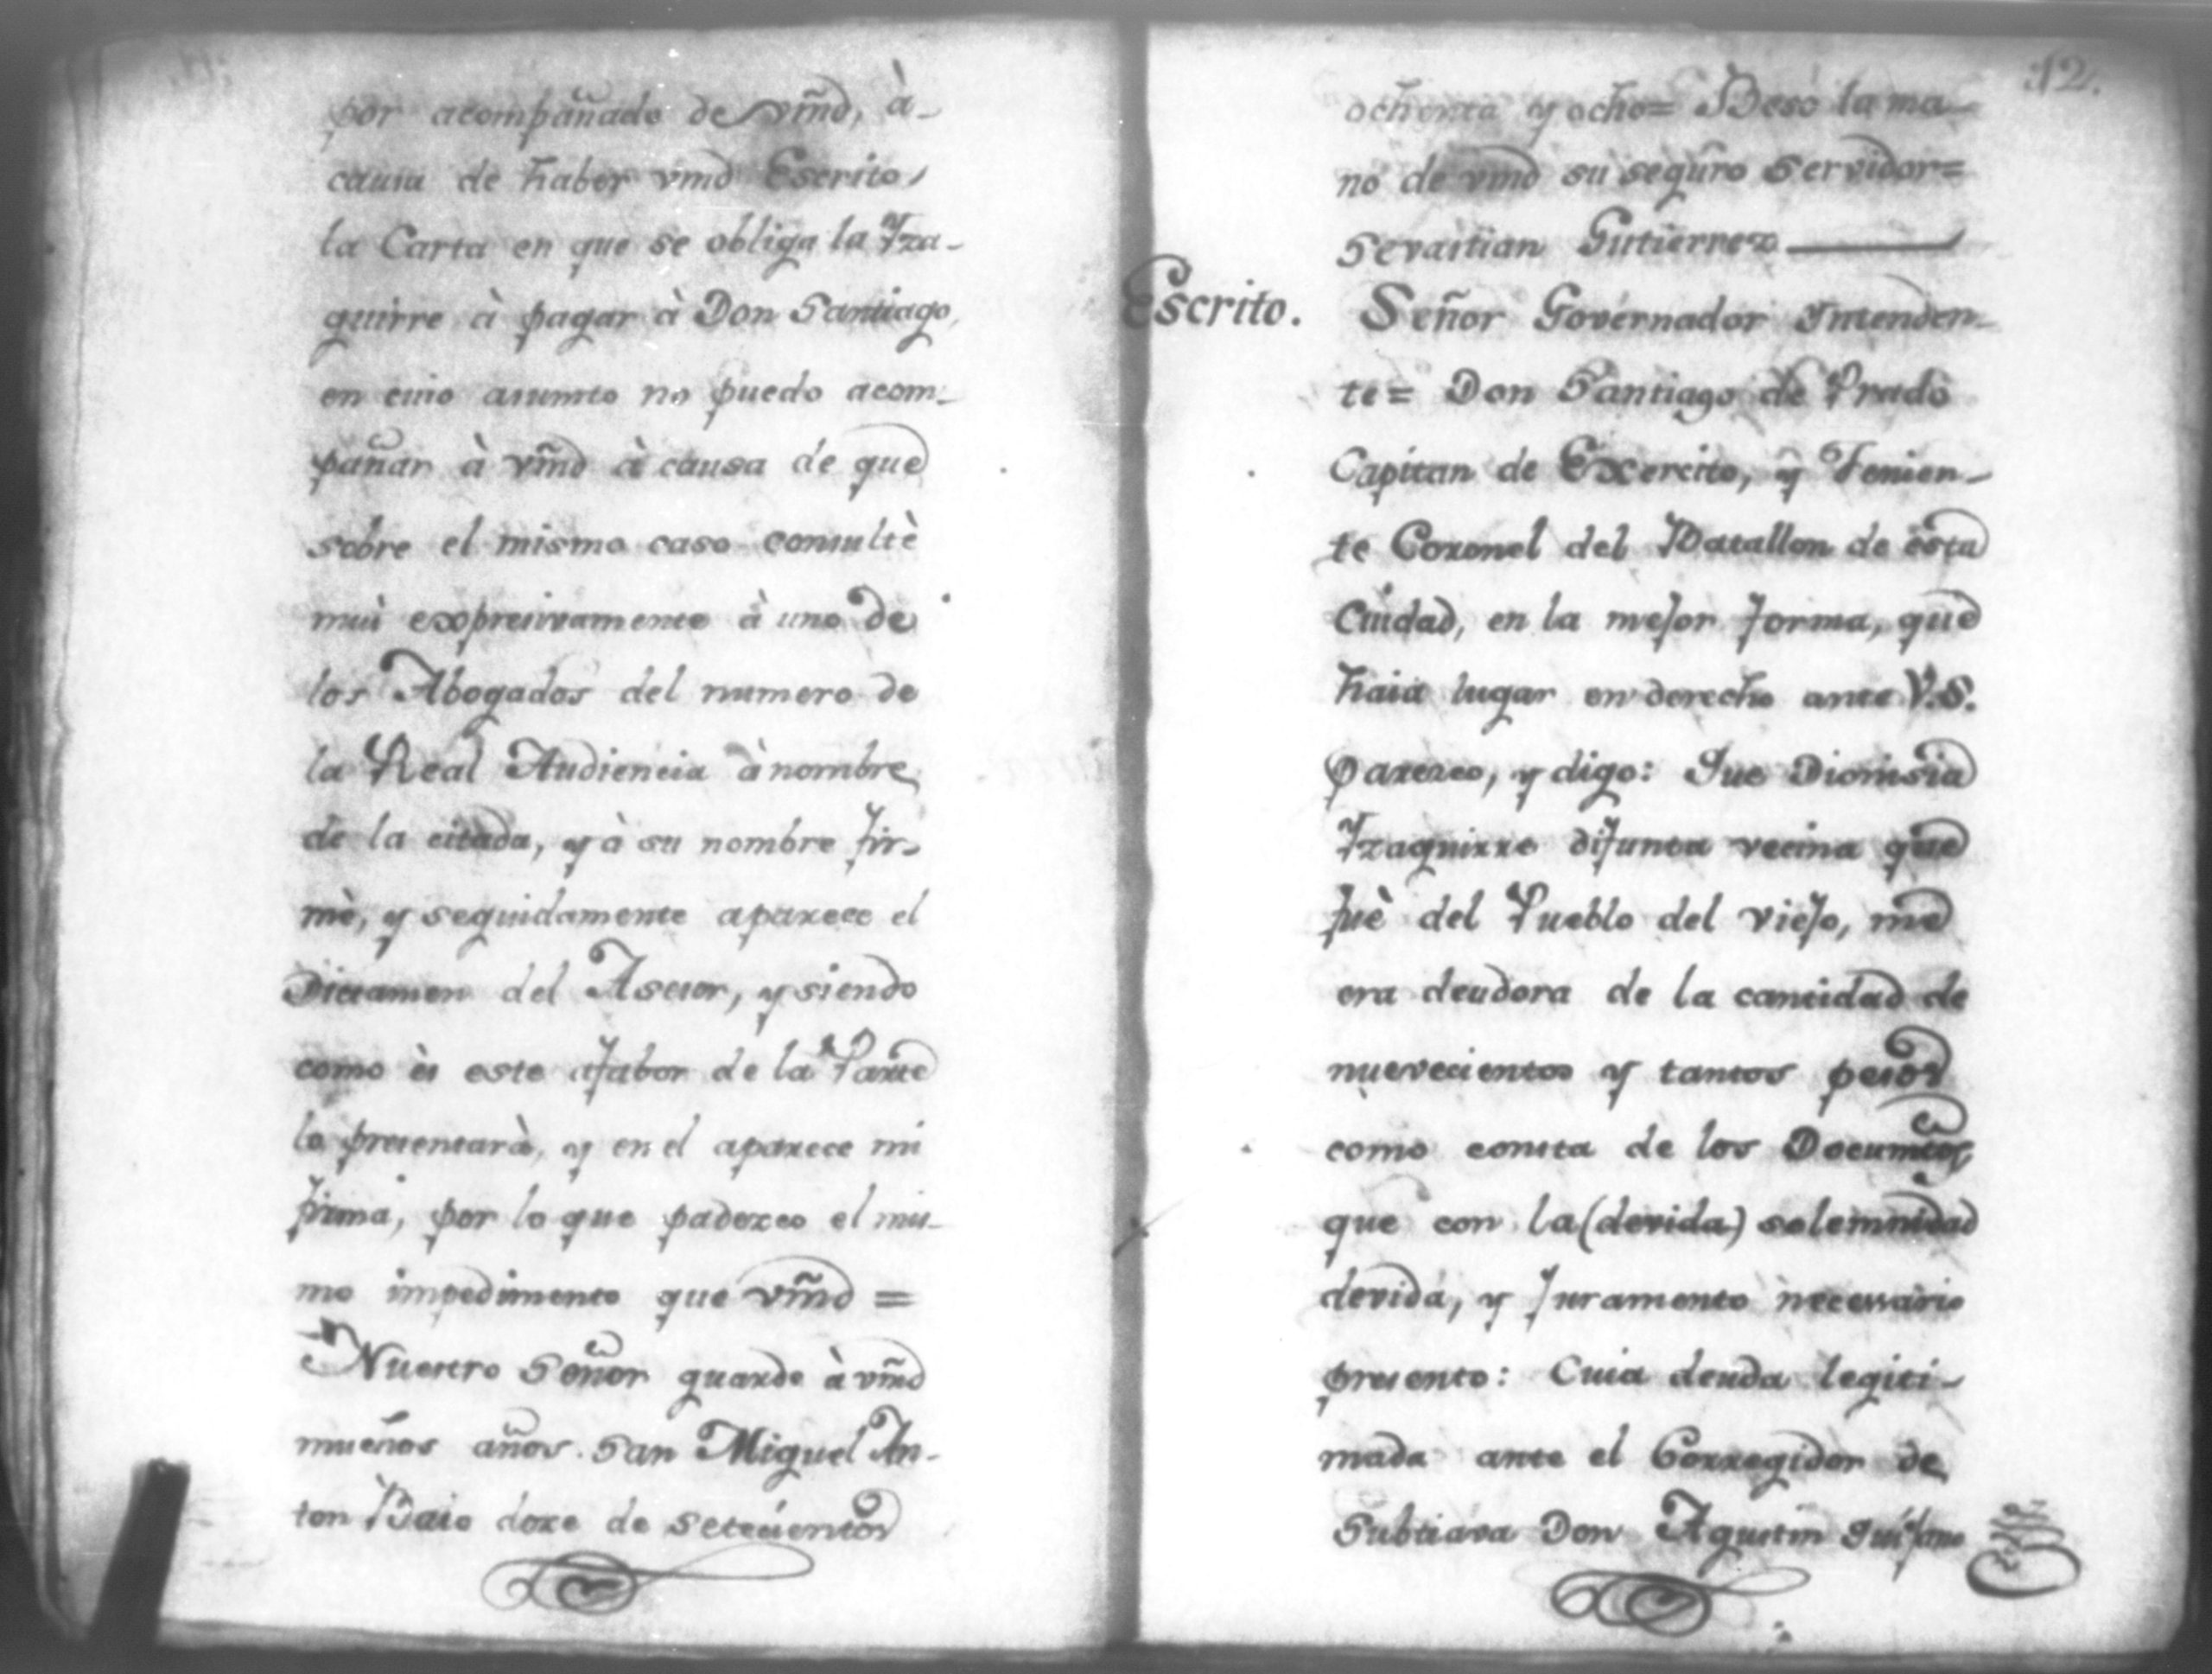 por acompañado de vmd, à
causa de haber vmd Escrito
la Carta en que se obliga la Yza-
guirre à pagar à Don Santiago,
en cuio asumto no puedo acom-
pañar à vmd à causa de que
sobre el mismo caso consultè
mui expresivamente à uno de
los Abogados del numero de
la Real Audiencia à nombre
de la citada, y à su nombre fir-
mè, y seguidamente aparece el
Dictamen del Asesor, y siendo
como ès este afabor de la Parte
lo presentarà, y en el aparece mi
firma, por lo que padezco el mis-
mo impedimento que vmd =
Nuestro Señor guarde à vmd
muchos años. San Miguel An-
ton Baio doze de setecientos
12.
ochenta y ocho = Beso la ma-
no de vmd su seguro servidor =
Sevastian Gutierrez
Escrito.
Señor Governador Intenden-
te = Don Santiago de Prado
Capitan de Exercito, y Tenien-
te Coronel del Batallon de esta
Ciudad, en la mejor forma, que
haia lugar en derecho ante V.S.
parezco, y digo: Que Dionisia
Yzaguirre difunta vecina que
fuè del Pueblo del viejo, me
era deudora de la cantidad de
nuevecientos y tantos pesos
como consta de los Documtos,
que con la (devida) solemnidad
devida, y Juramento necessario
presento: Cuia deuda legiti-
mada ante el Corregidor de
Subtiava Don Agustin